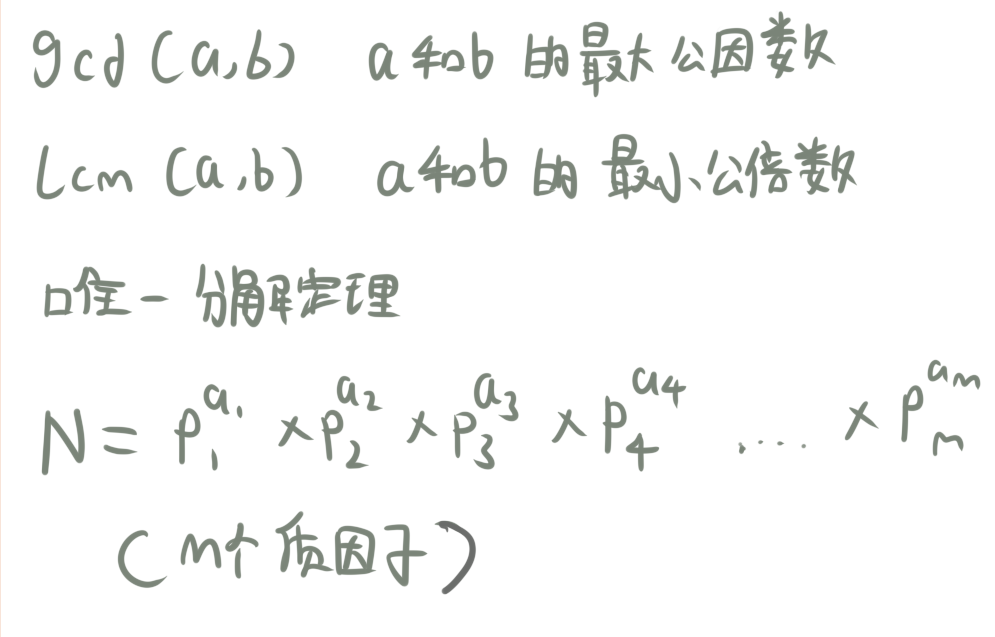 gcd (a,b) a和b 的最大公因数
Lcm (a,b) a和b 的 最小公倍数
唯一分解定理
N = p₁^a₁ × p₂^a₂ × p₃^a₃ × p₄^a₄ ..... × pₘ^aₘ
(m个质因子)